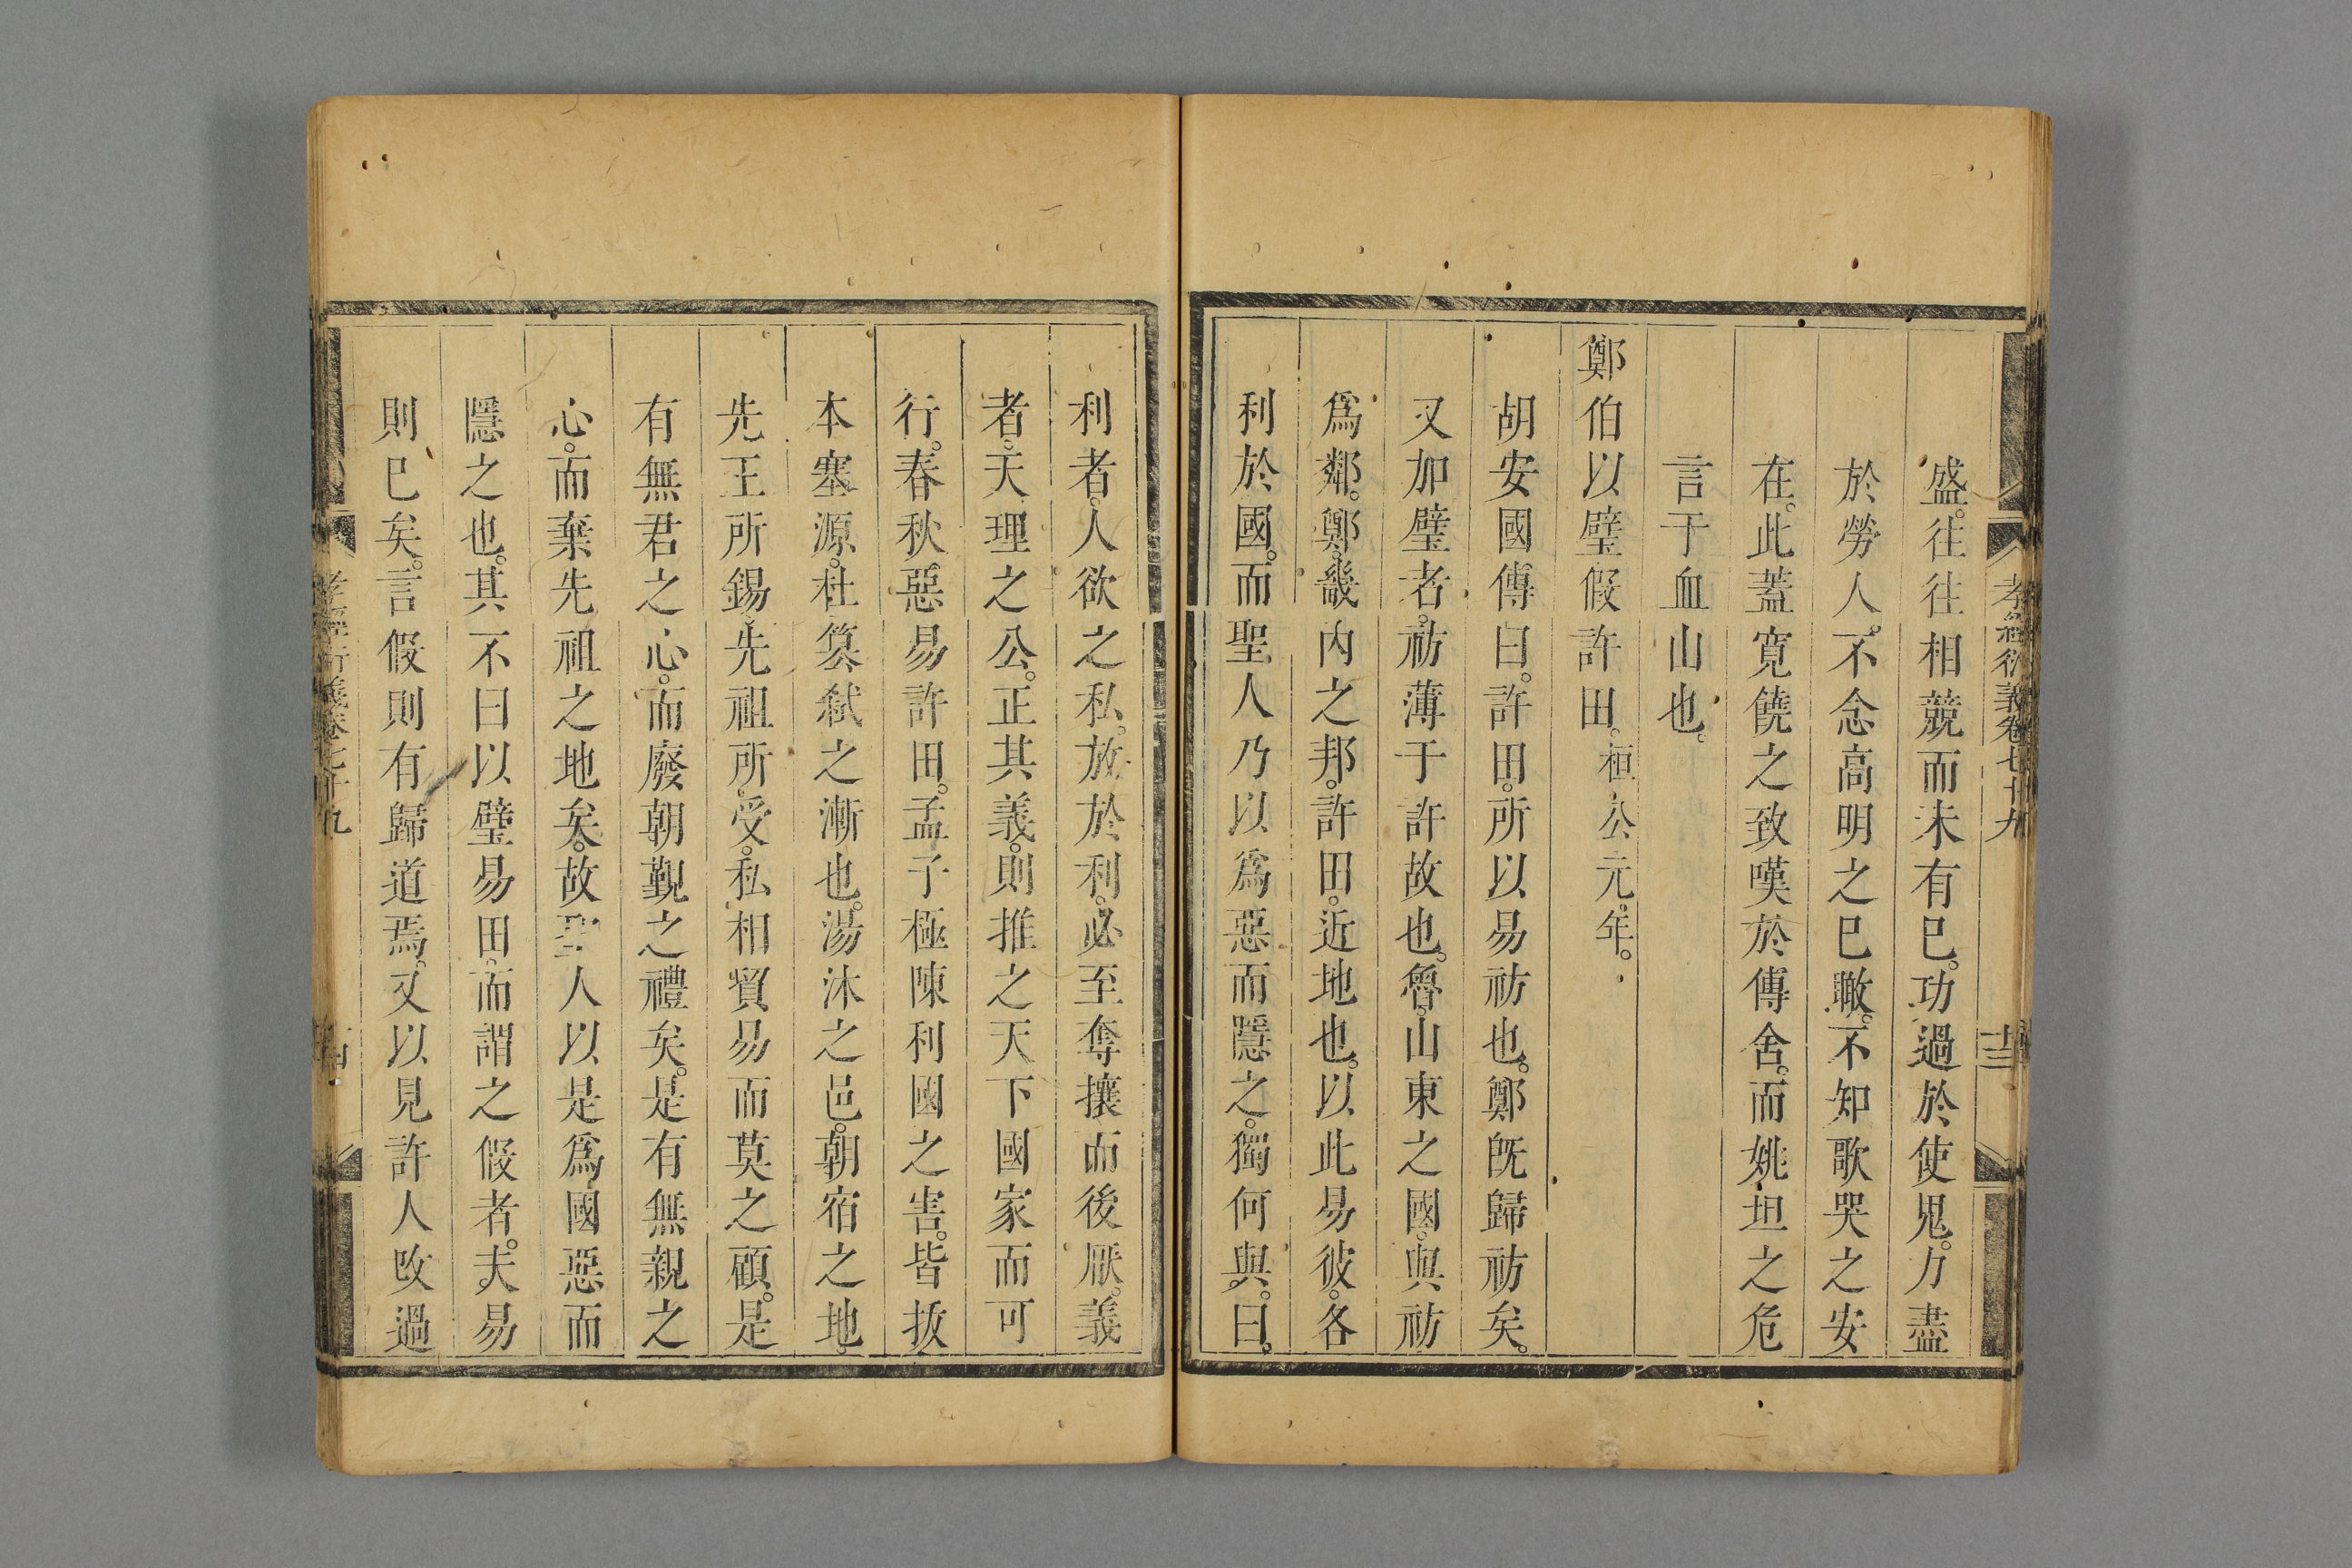 孝經衍義卷七十九
十三
盛。往往相競而未有已。功過於使鬼。力盡
於勞人。不念高明之已瞰。不知歌哭之安
在。此蓋寛饒之致嘆於傳舍。而姚坦之危
言于血山也。
鄭伯以璧假許田。桓公元年。
胡安國傳曰。許田。所以易祊也。鄭旣歸祊矣。
又加璧者。祊薄于許故也。魯。山東之國。與祊
爲鄰。鄭。畿內之邦。許田。近地也。以此易彼。各
利於國。而聖人乃以爲惡而隱之。獨何與。曰。
利者。人欲之私。放於利。必至奪攘而後厭。義
者。天理之公。正其義。則推之天下國家而可
行。春秋惡易許田。孟子極陳利國之害。皆拔
本塞源。杜篡弑之漸也。湯沐之邑。朝宿之地。
先王所錫。先祖所受。私相貿易而莫之顧。是
有無君之心。而廢朝覲之禮矣。是有無親之
心。而棄先祖之地矣。故聖人以是爲國惡而
隱之也。其不曰以璧易田。而謂之假者。夫易
則已矣。言假則有歸道焉。又以見許人改過
孝經衍義卷七十九
十四